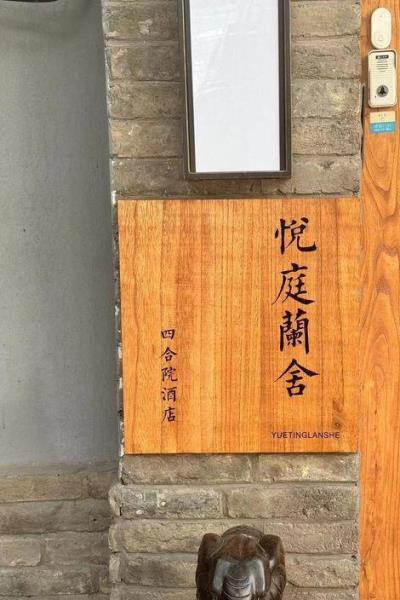 悅庭蘭舍
四合院酒店
YUETINGLANSHE